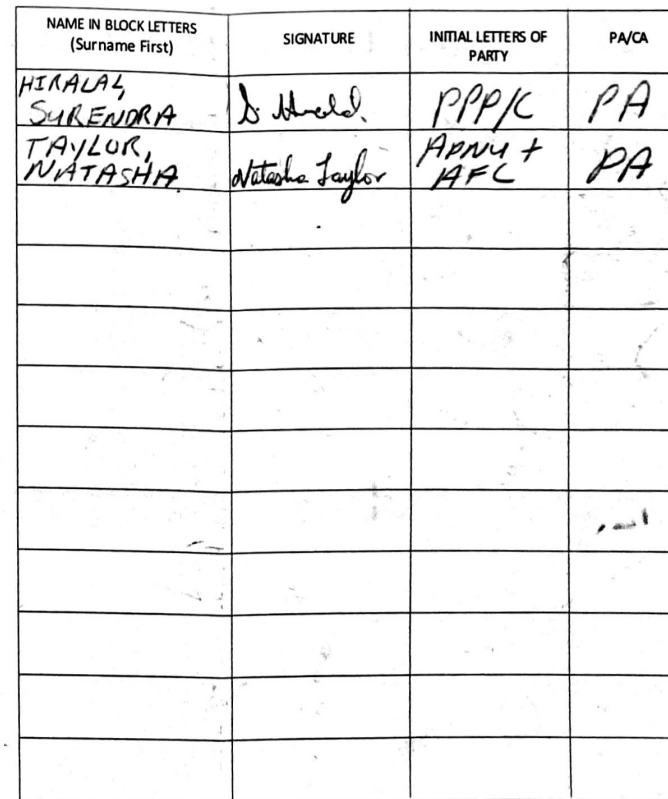 NAME IN BLOCK LETTERS
(Surname First)
SIGNATURE
INITIAL LETTERS OF
PARTY
PA/CA
HIRALAL,
SURENDRA
PPP/C
PA
TAYLOR,
NATASHA
Natasha Taylor
APNU +
AFC
PA